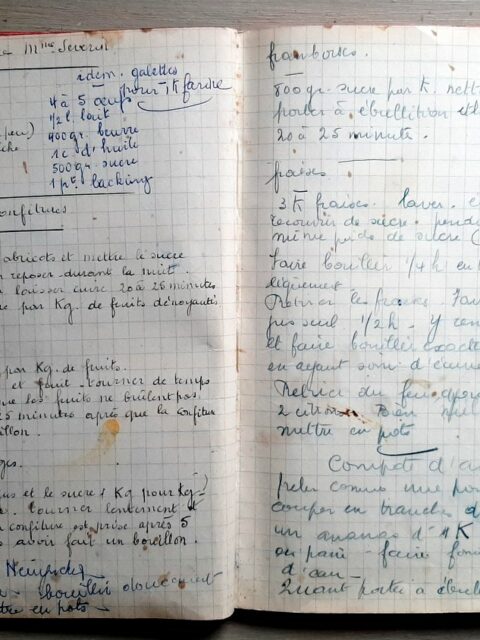 Mme Severin
idem. galettes
pour 1K farine
4 à 5 œufs
1/2 l. lait
400gr. beurre
1c. d'huile
500gr. sucre
1 pt. backing
onfitures
abricots et mettre le sucre
reposer durant la nuit.
laisser cuire 20 à 25 minutes
par Kg. de fruits dénoyautés
par Kg. de fruits.
et faut tourner de temps
que les fruits ne brûlent pas.
25 minutes après que la confiture
illon.
ges.
us et le sucre 1 Kg pour Kg
tourner lentement et
confiture est prise après 5
s avoir fait un bouillon.
bouillir doucement
ttre en pots
framboises.
800gr. sucre par K. nett
porter à ébullition et
20 à 25 minute.
fraises
3K fraises. laver. e
recouvrir de sucre. pend
même poids de sucre
Faire bouiller 1/4 h. en
légèrement.
Retirer les fraises. Fai
jus seul 1/2 h. y rem
et faire bouillir exacte
en ayant soin d'écume
Retirer du feu
2 citrons. Bien
mettre en pots
Compote d'a
peler comme une po
couper en tranches d
un ananas d'1K
ou pain - faire fon
d'eau -
Quant porter à ébul